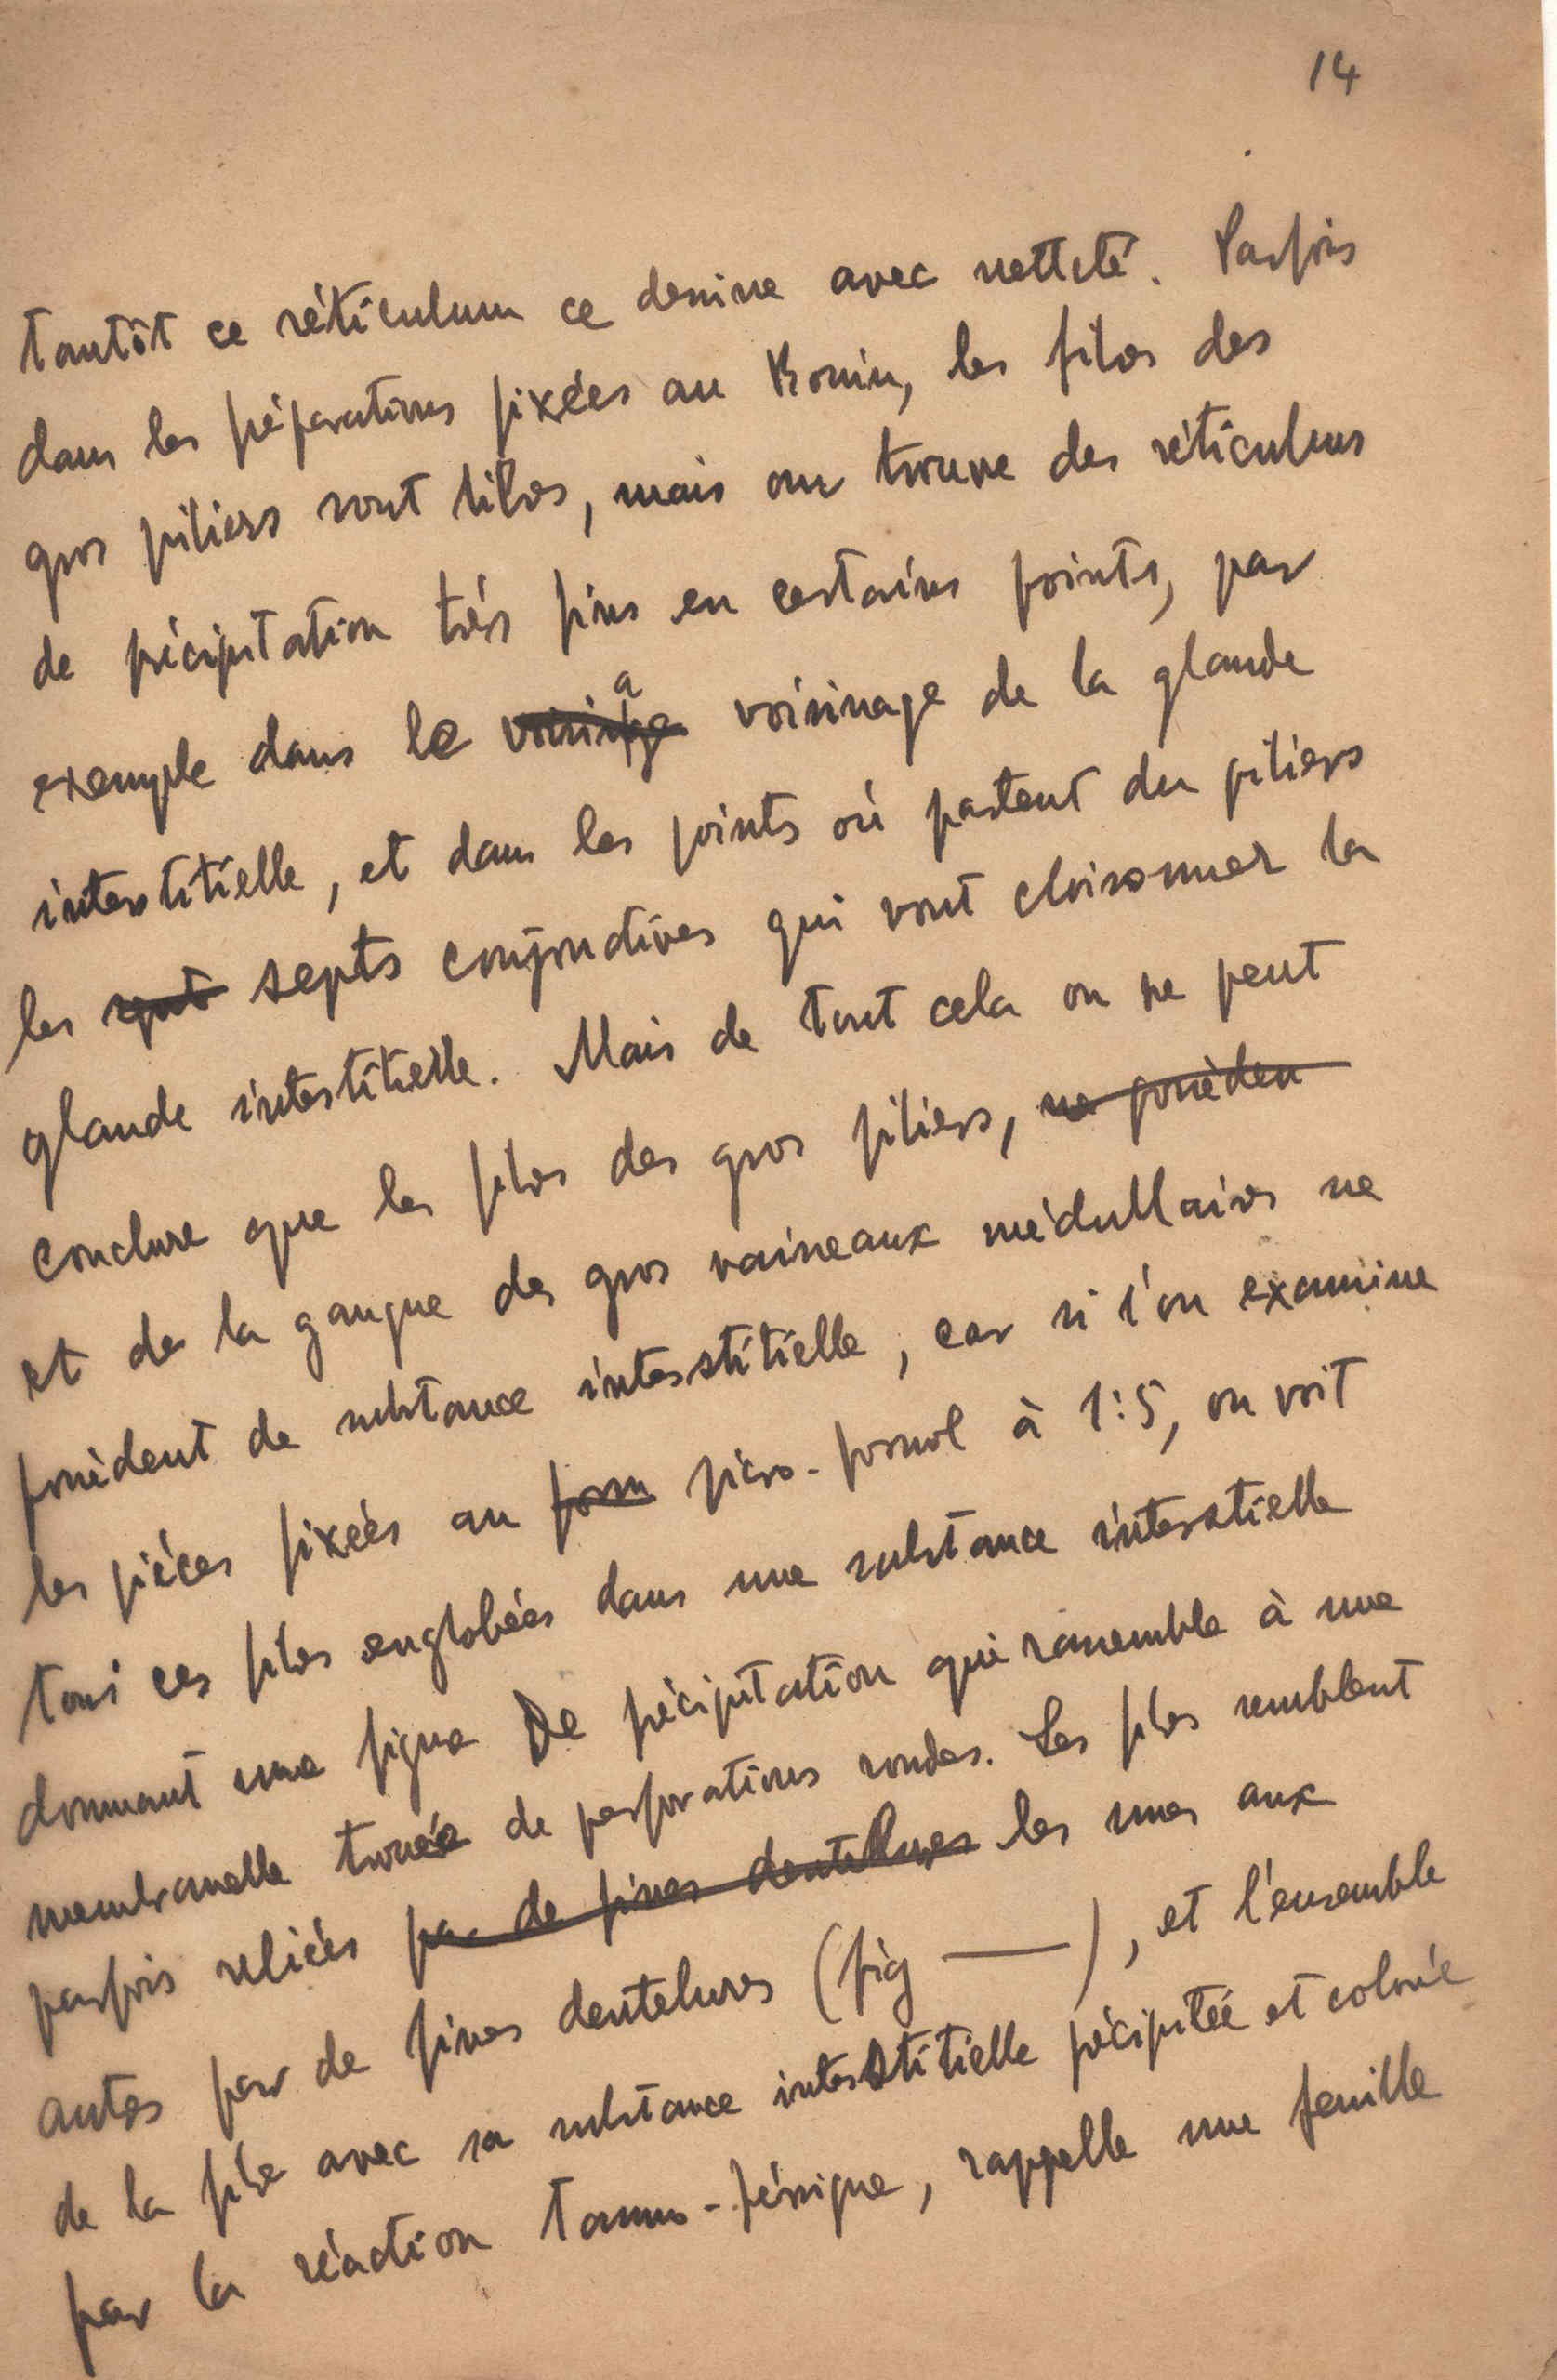 14
tantôt ce réticulum ce dessine avec netteté. Parfois
dans les préparations fixées au Bouin, les fibres des
gros piliers sont libres, mais on trouve des réticulums
de précipitation très fins en certains points, par
exemple dans le voisinage voisinage de la glande
interstitielle, et dans les points où partent du piliers
les sept septs conjonctives qui vont cloisonner la
glande interstitielle. Mais de tout cela on ne peut
conclure que les fibres des gros piliers, ne possèden
et de la gangue des gros vaisseaux médullaires ne
possèdent de substance interstitielle, car si l'on examine
les pièces fixées au form picro-formol à 1:5, on voit
tous ces fibres englobées dans une substance interstielle
donnant une figure De précipitation qui rassemble à une
membranelle trouée de perforations rondes. Les fibres semblent
parfois reliées par de fines dentelures les unes aux
autres par de fines dentelures (fig —), et l'ensemble
de la fibre avec sa substance interstitielle précipitée et colorée
par la réaction tanno-férrique, rappelle une feuille